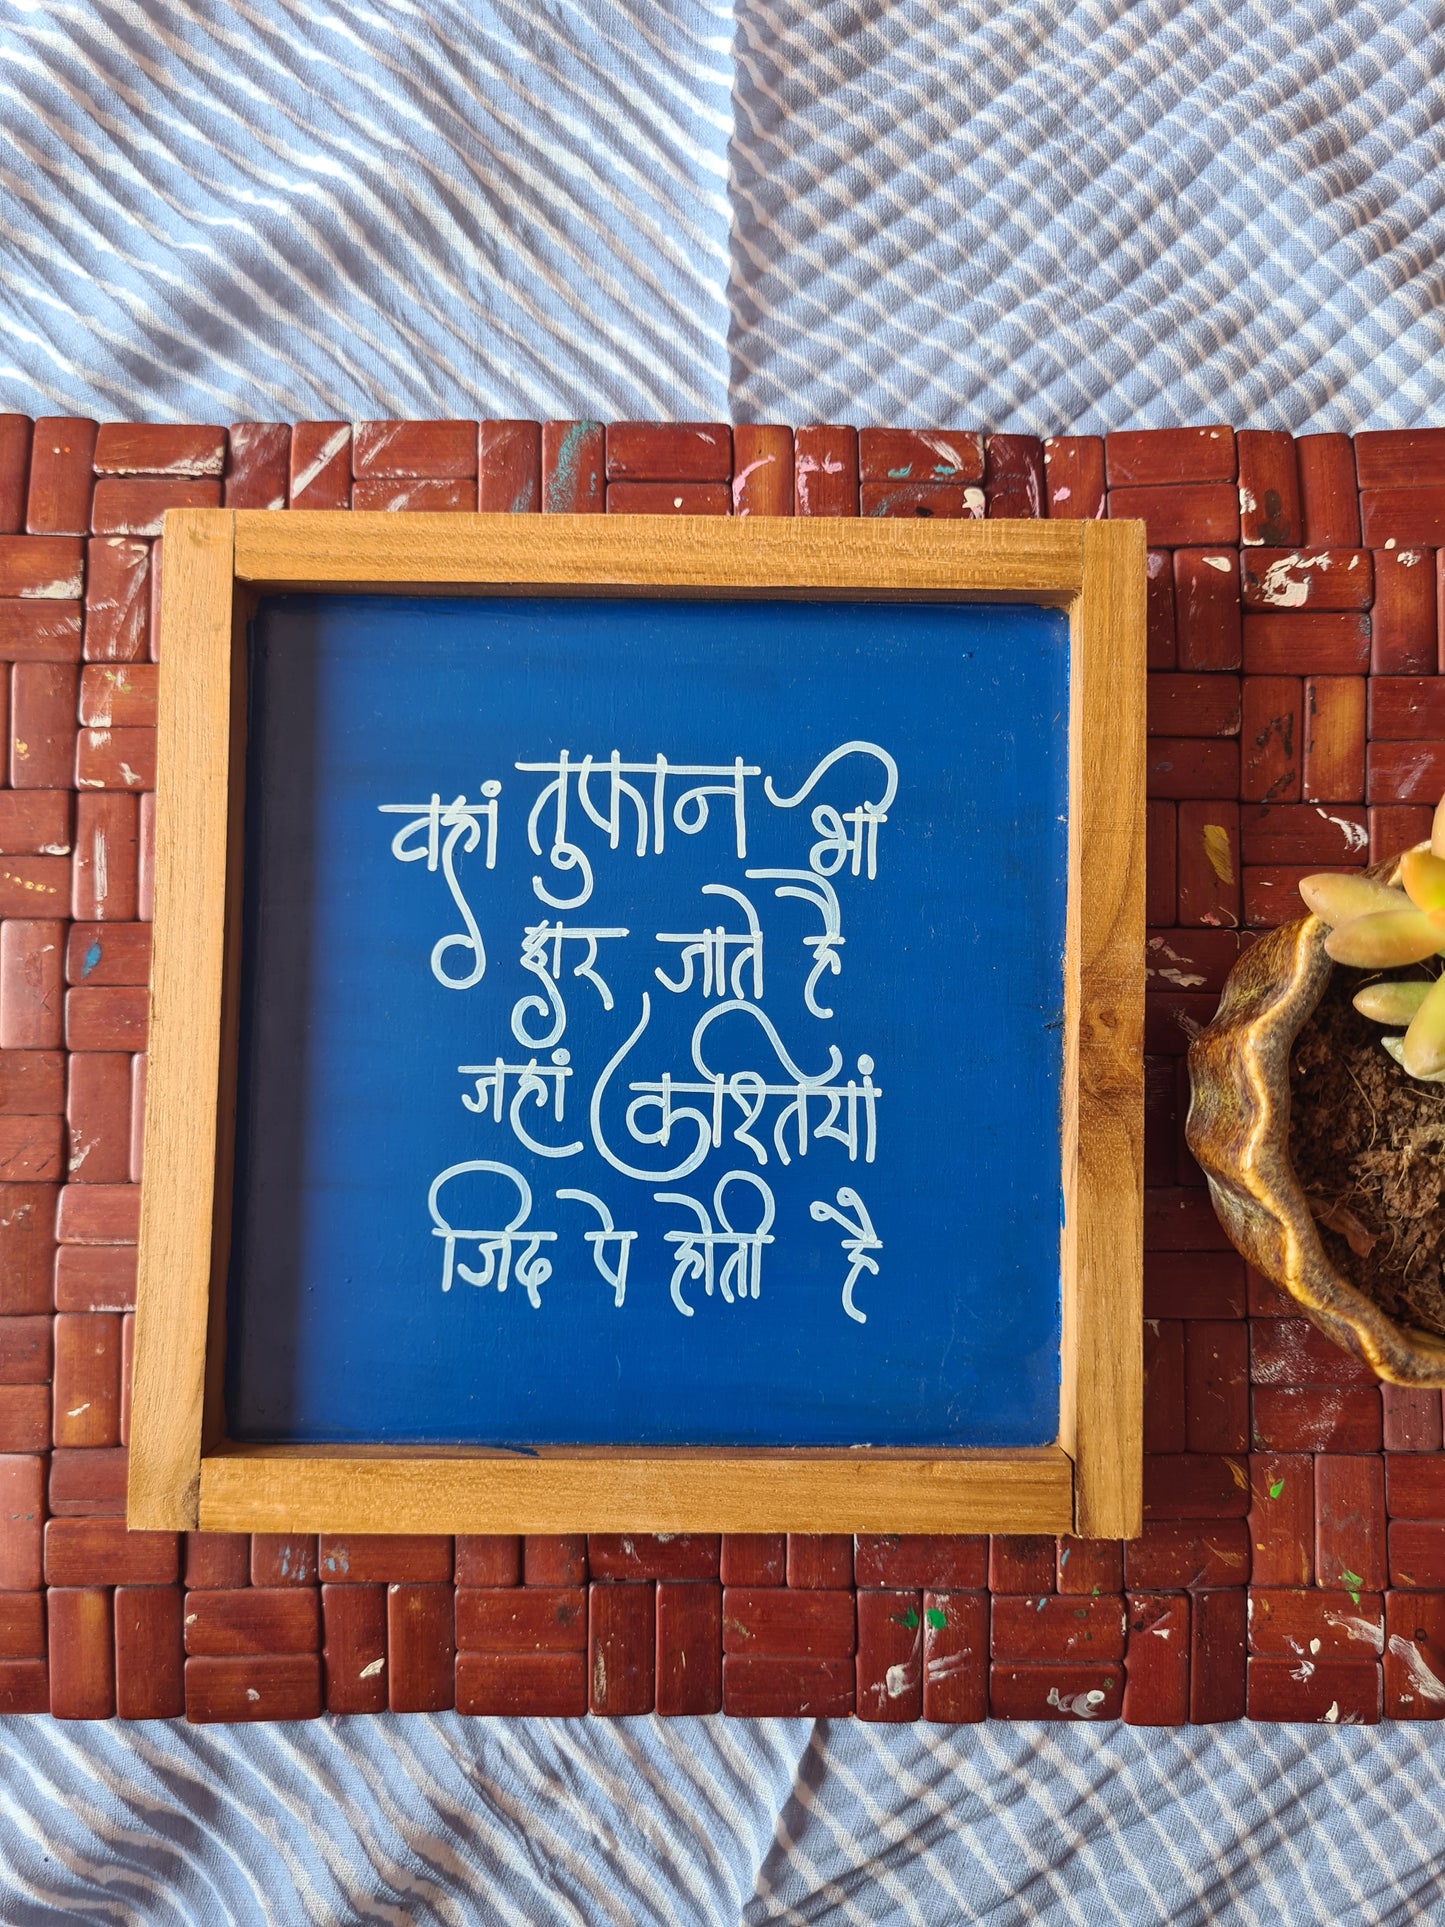 वहां तुफान भी
हार जाते है
जहां कश्तियां
जिद पे होती है